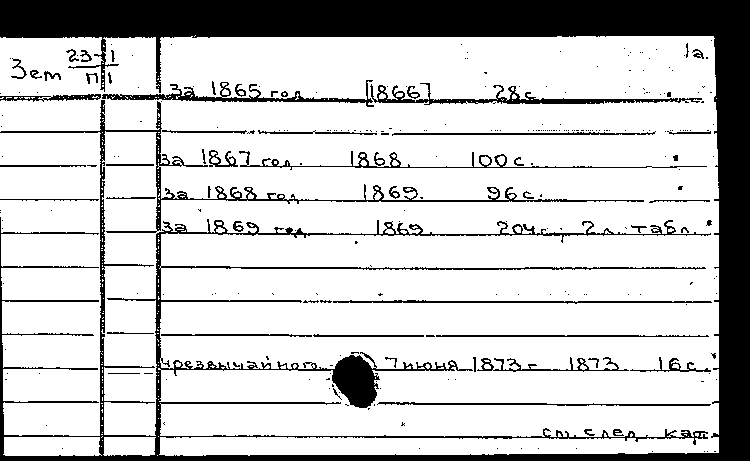 1а.
Зем 23-1
П1
за 1865 год [1866] 28с.
за 1867 год. 1868. 100с.
за 1868 год 1869. 96с.
за 1869 год 1869. 204с., 2л. табл.
чрезвычайного 7 июня 1873г 1873 16с.
см. след. кат.